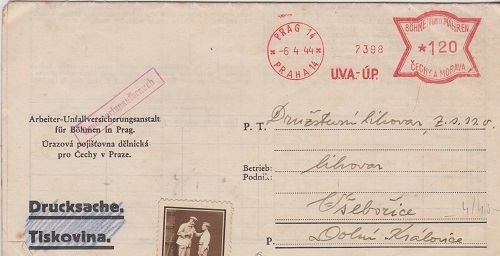 PRAG 14
-6.4.44
PRAHA 14
7398
U.V.A.-Ú.P.
BÖHMEN UND MÄHREN
*120
ČECHY A MORAVA
Arbeiter-Unfallversicherungsanstalt
für Böhmen in Prag.
Úrazová pojišťovna dělnická
pro Čechy v Praze.
P. T. Družstevní lihovar z. s. n. o.
Betrieb:
Podnik: lihovar
Všebořice
4/40
Drucksache.
Tiskovina.
P. Dolní Kralovice